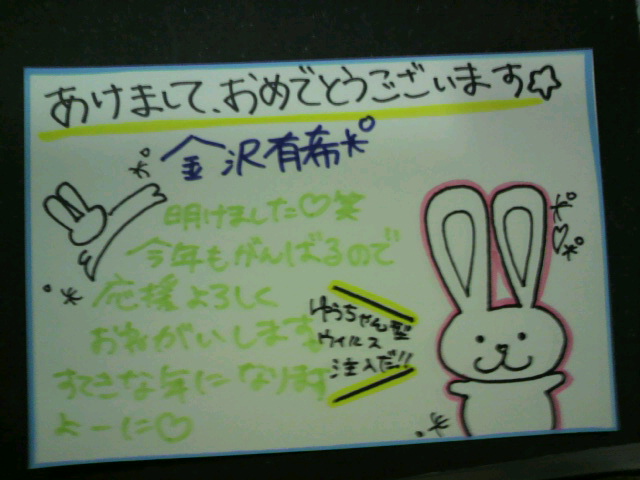 あけまして、おめでとうございます☆
金沢有希*°
明けました♡笑
今年もがんばるので
応援よろしく
おねがいします
すてきな年になります
よーに♡
ゆうちゃん型
ウイルス
注入だ!!